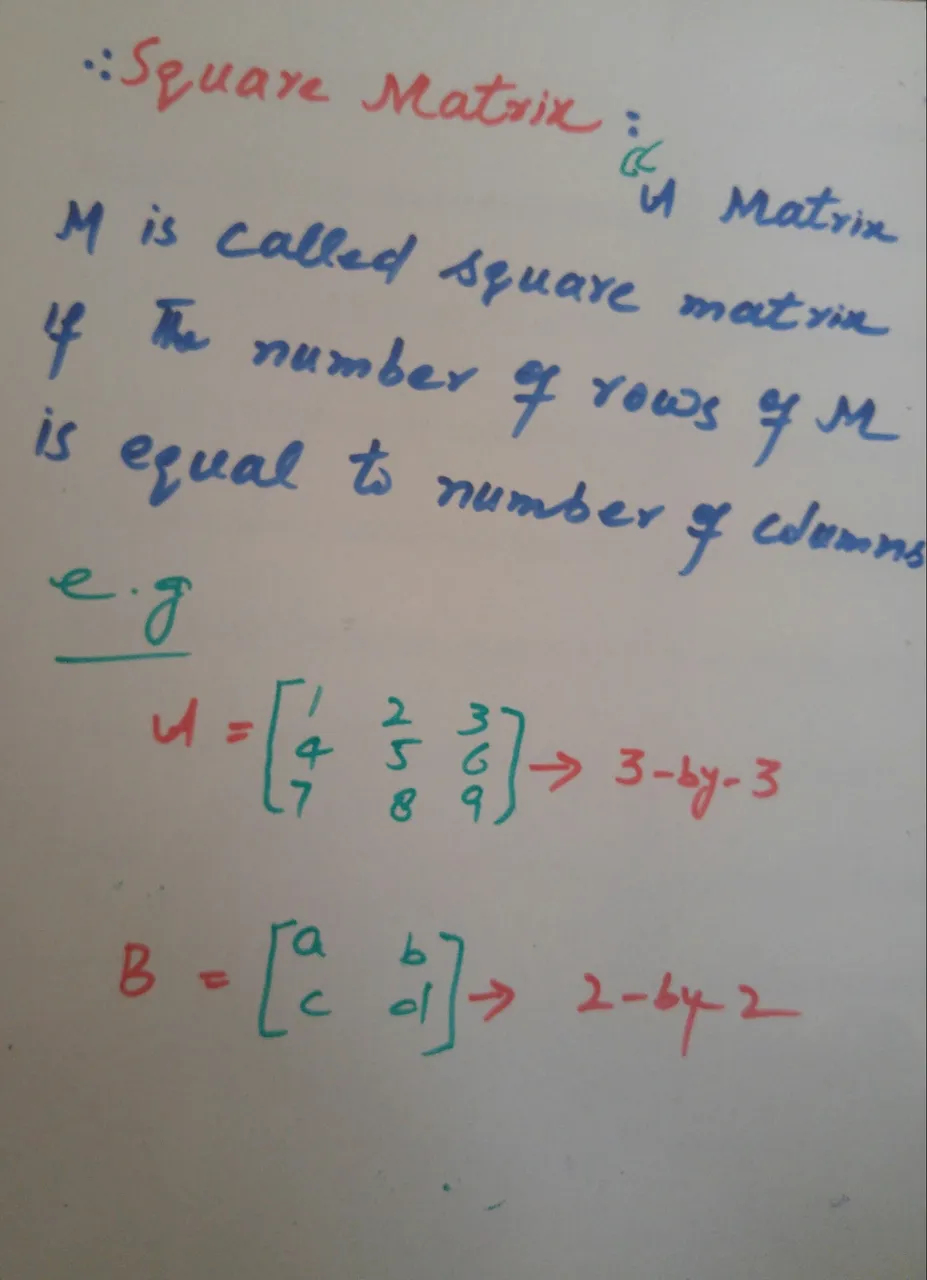 ∴ Square Matrix :
A Matrix
M is called square matrix
if The number of rows of M
is equal to number of columns
e.g
A = [1 2 3
4 5 6
7 8 9] → 3-by-3
B = [a b
c d] → 2-by-2